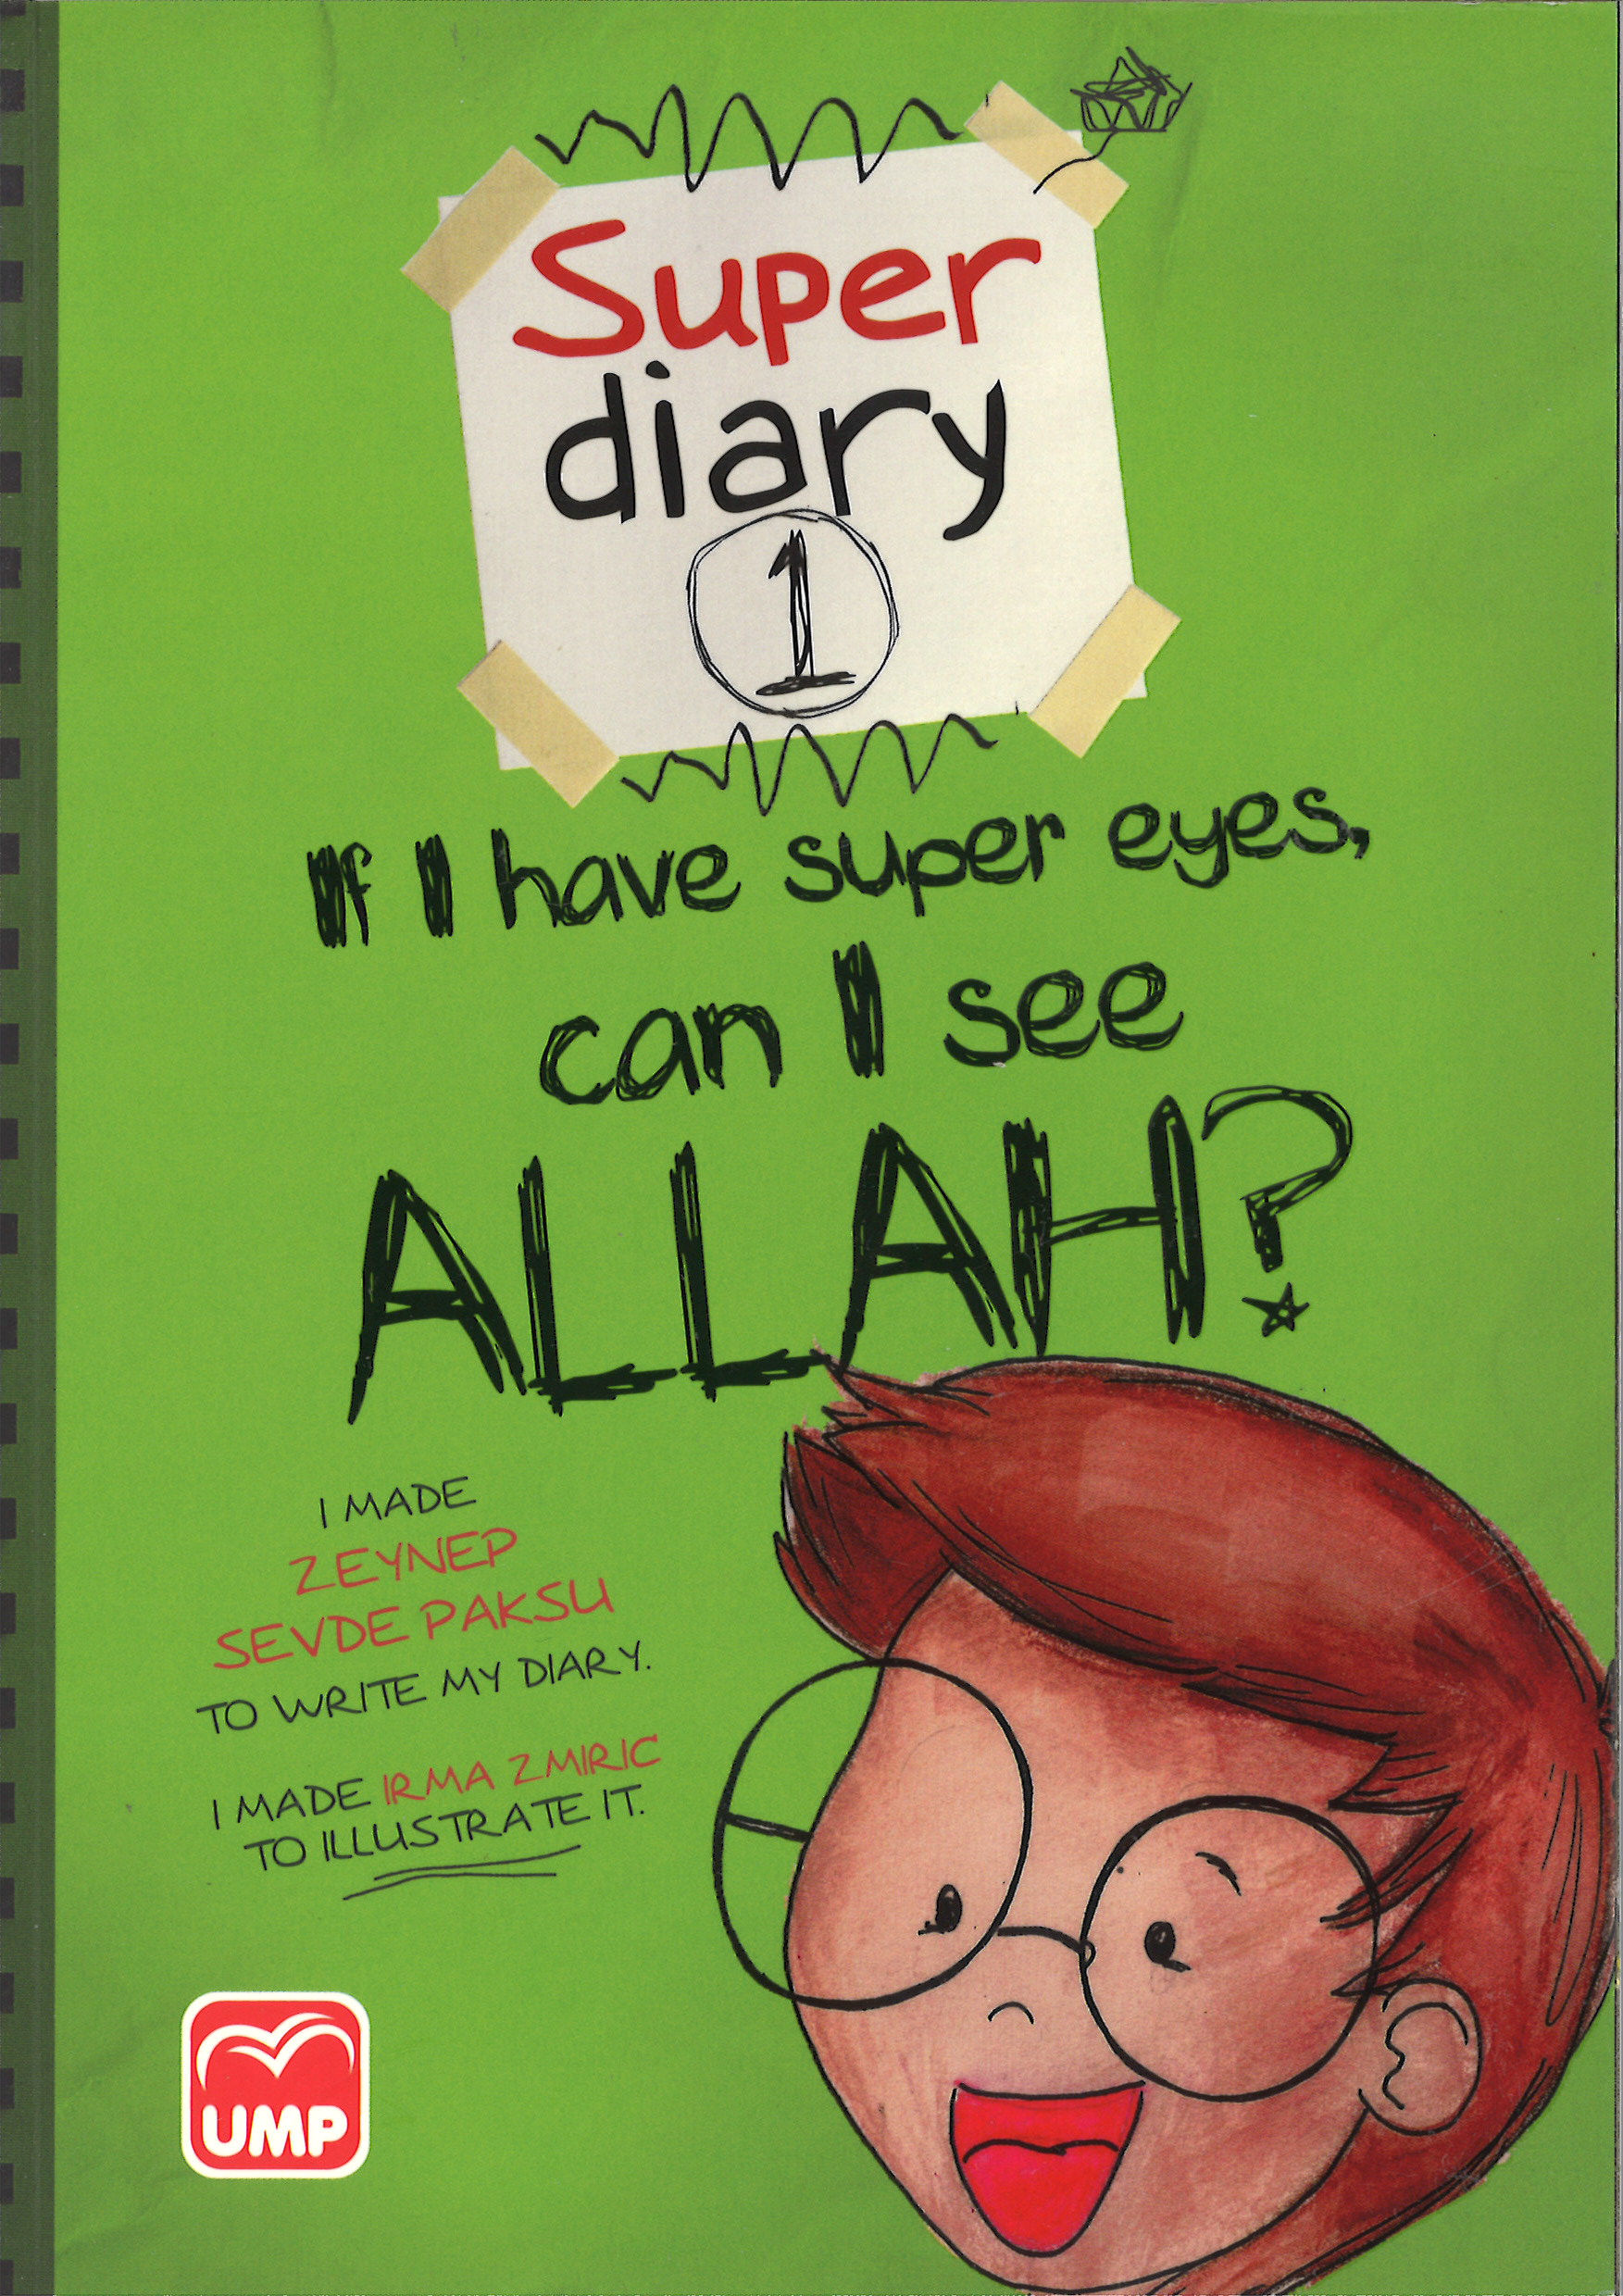 Super
diary
1
If I have super eyes,
can I see
ALLAH?
I MADE
ZEYNEP
SEVDE PAKSU
TO WRITE MY DIARY.
I MADE IRMA ZMIRIC
TO ILLUSTRATE IT.
UMP